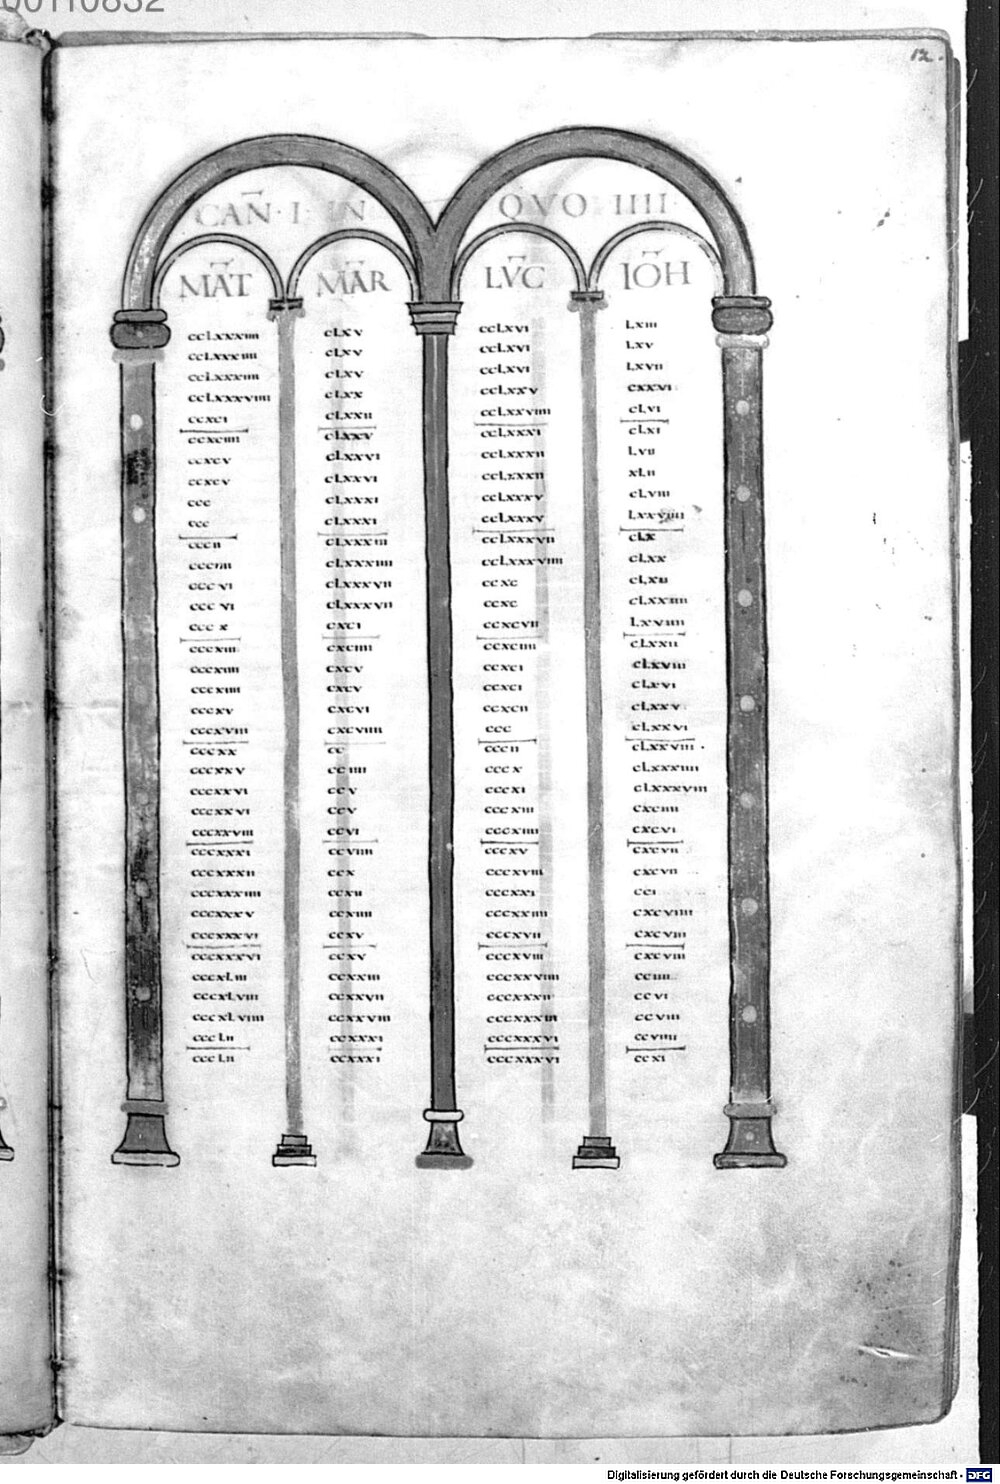 00110832
12.
CAN̄ · I · IN QVO IIII
MAT̄ MAR̄ LVC̄ IOH̄
ccLxxxiiii cLxv ccLxvi Lxiii
ccLxxxiiii cLxv ccLxvi Lxv
ccLxxxiiii cLxv ccLxvi Lxvii
ccLxxxviiii cLxx ccLxxv cxxvi
ccxci cLxxii ccLxxviiii cLvi
ccxciiii cLxxv ccLxxxi cLxi
ccxcv cLxxvi ccLxxxii Lvii
ccxcv cLxxvi ccLxxxii xLii
ccc cLxxxi ccLxxxv cLviii
ccc cLxxxi ccLxxxv Lxxviiii
cccii cLxxxiii ccLxxxvii cLx
ccciiii cLxxxiiii ccLxxxviiii cLxx
cccvi cLxxxvii ccxc cLxii
cccvi cLxxxvii ccxc cLxxiiii
cccx cxci ccxcvii Lxviiii
cccxiii cxciiii ccxciiii cLxxii
cccxiiii cxcv ccxci cLxviii
cccxiiii cxcv ccxci cLxvi
cccxv cxcvi ccxcii cLxxv
cccxviii cxcviiii ccc cLxxvi
cccxx cc cccii cLxxviii
cccxxv cciiii cccx cLxxxiiii
cccxxvi ccv cccxi cLxxxviii
cccxxvi ccv cccxiii cxciiii
cccxxviii ccvi cccxiiii cxcvi
cccxxxi ccviiii cccxv cxcvii
cccxxxii ccx cccxviii cxcvii
cccxxxiiii ccxii cccxxi cci
cccxxxv ccxiiii cccxxiiii cxcviiii
cccxxxvi ccxv cccxvii cxcviii
cccxxxvi ccxv cccxviii cxcviii
cccxLiii ccxxiii cccxxviiii cciiii
cccxLviii ccxxvii cccxxxii ccvi
cccxLviiii ccxxviii cccxxxiii ccviii
cccLii ccxxxi cccxxxvi ccviiii
cccLii ccxxxi cccxxxvi ccxi
Digitalisierung gefördert durch die Deutsche Forschungsgemeinschaft - DFG